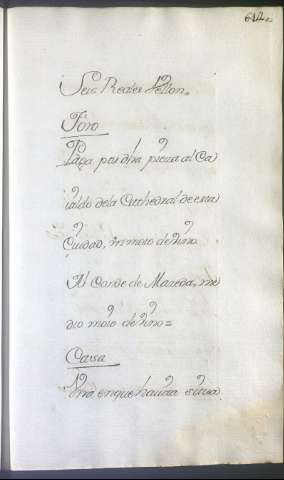 642
Seis Reales Vellon.
Foro
Paga por dha pieza al Ca
vildo dela Cathedral de esta
Ciudad, vn moio de vino
Al Conde de Maceda, me
dio moio de vino=
Casa
Vna en que hauita